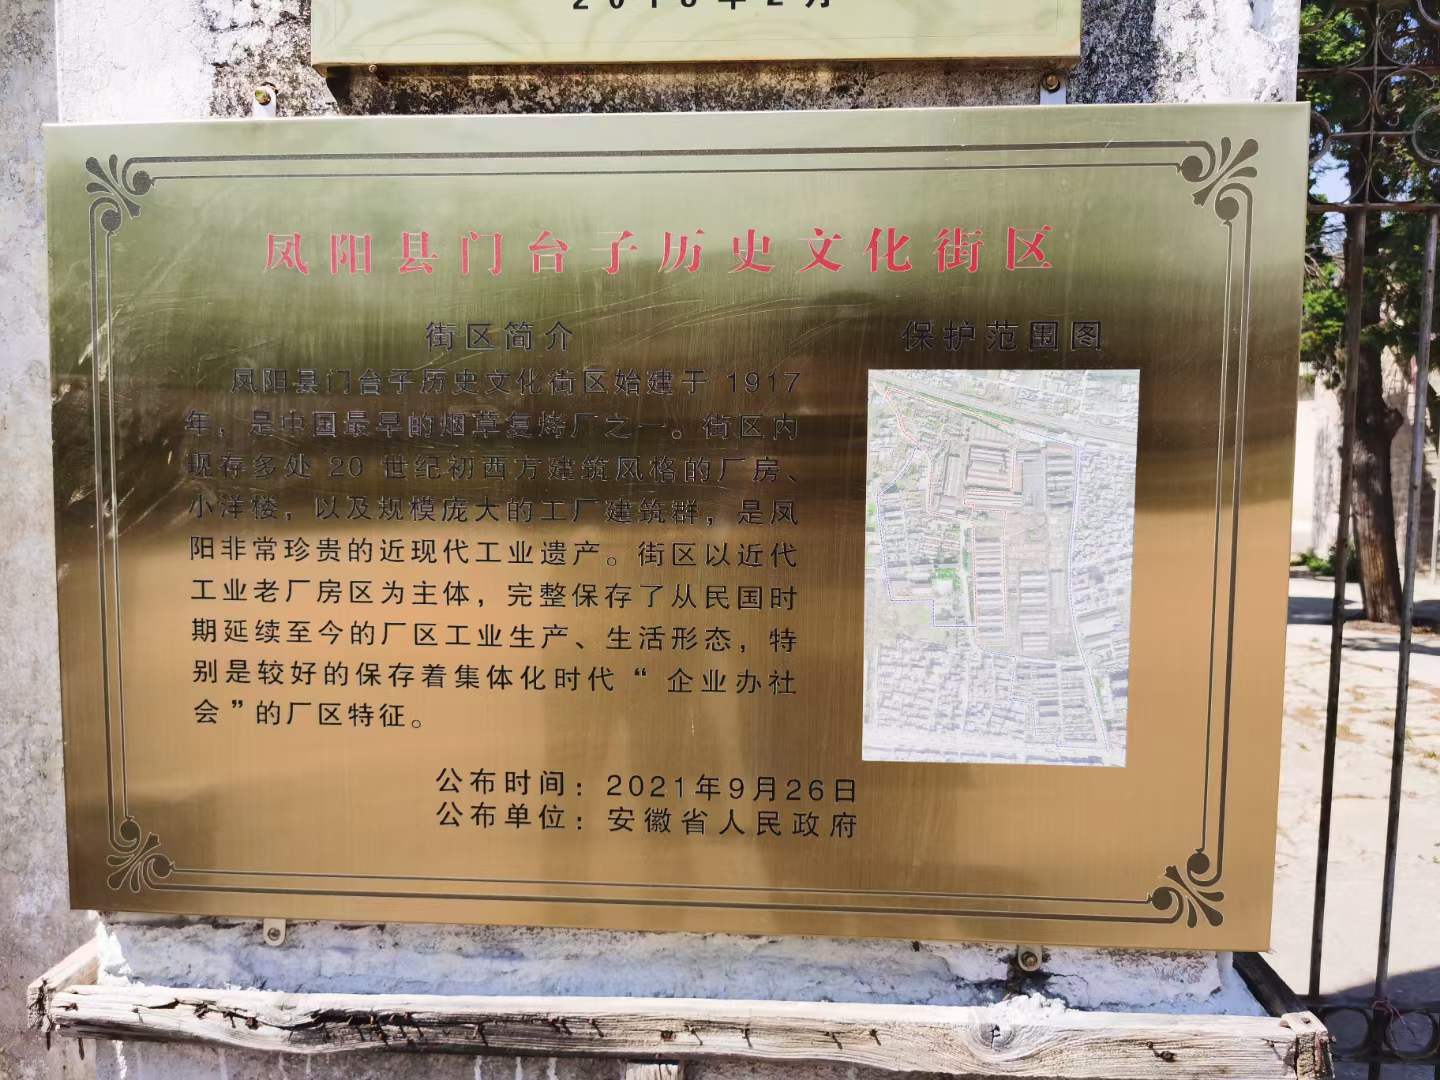 凤阳县门台子历史文化街区
街区简介
凤阳县门台子历史文化街区始建于 1917
年，是中国最早的烟草复烤厂之一。街区内
现存多处 20 世纪初西方建筑风格的厂房、
小洋楼，以及规模庞大的工厂建筑群，是凤
阳非常珍贵的近现代工业遗产。街区以近代
工业老厂房区为主体，完整保存了从民国时
期延续至今的厂区工业生产、生活形态，特
别是较好的保存着集体化时代“企业办社
会”的厂区特征。
保护范围图
公布时间：2021年9月26日
公布单位：安徽省人民政府